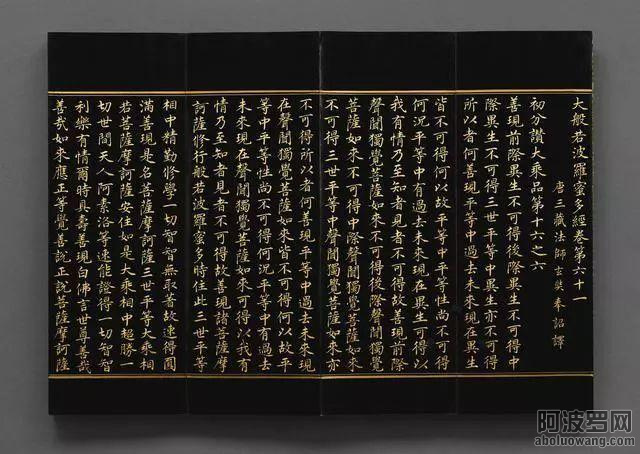 大般若波羅蜜多經卷第六十一
唐三藏法師玄奘奉 詔譯
初分讚大乘品第十六之六
善現前際異生不可得後際異生不可得中
際異生不可得三世平等中異生亦不可得
所以者何善現平等中過去未來現在異生
皆不可得何以故平等中平等性尚不可得
何況平等中有過去未來現在異生可得以
我有情乃至知者見者不可得故善現前際
聲聞獨覺菩薩如來不可得後際聲聞獨覺
菩薩如來不可得中際聲聞獨覺菩薩如來
不可得三世平等中聲聞獨覺菩薩如來亦
不可得所以者何善現平等中過去未來現
在聲聞獨覺菩薩如來皆不可得何以故平
等中平等性尚不可得何況平等中有過去
未來現在聲聞獨覺菩薩如來可得以我有
情乃至知者見者不可得故善現諸菩薩摩
訶薩修行般若波羅蜜多時住此三世平等
相中精勤修學一切智智無取著故速得圓
滿善現是名菩薩摩訶薩三世平等大乘相
若菩薩摩訶薩安住如是大乘相中超勝一
切世間天人阿素洛等速能證得一切智智
利樂有情爾時具壽善現白佛言世尊善哉
善哉如來應正等覺善說正說菩薩摩訶薩
阿波罗网
aboluowang.com